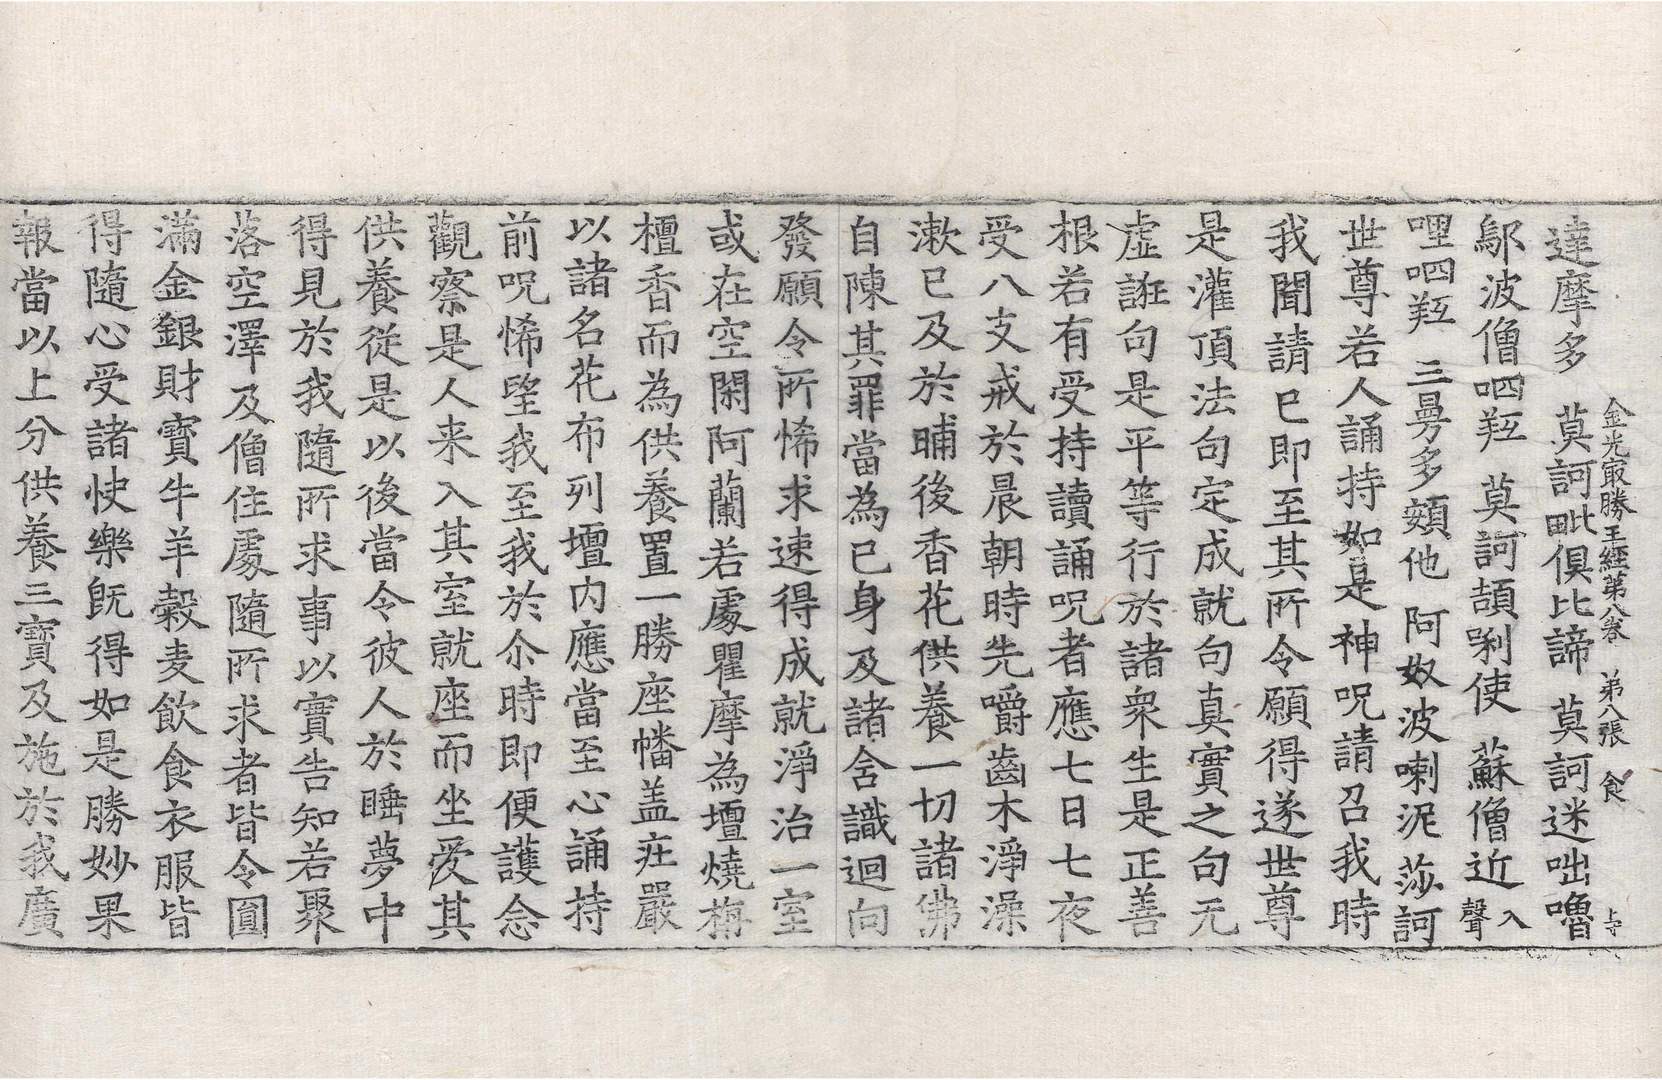 金光㝡勝王經第八卷 第八張 食
達摩多 莫訶毗俱比諦 莫訶迷咄嚕 上
鄔波僧呬羟 莫訶頡唎使 蘇僧近 入聲
哩呬羟 三曼多頞他 阿奴波喇泥 莎訶
世尊若人誦持如是神呪請召我時
我聞請已即至其所令願得遂世尊
是灌頂法句定成就句真實之句无
虛誑句是平等行於諸衆生是正善
根若有受持讀誦呪者應七日七夜
受八支戒於晨朝時先嚼齒木淨澡
漱已及於晡後香花供養一切諸佛
自陳其罪當為己身及諸含識迴向
發願令所悕求速得成就淨治一室
或在空閑阿蘭若處瞿摩為壇燒栴
檀香而為供養置一勝座幡盖庄嚴
以諸名花布列壇内應當至心誦持
前呪悕望我至我於尒時即便護念
觀察是人来入其室就座而坐受其
供養從是以後當令彼人於睡夢中
得見於我隨所求事以實告知若聚
落空澤及僧住處隨所求者皆令圓
滿金銀財寶牛羊穀麦飲食衣服皆
得隨心受諸快樂既得如是勝妙果
報當以上分供養三寶及施於我廣